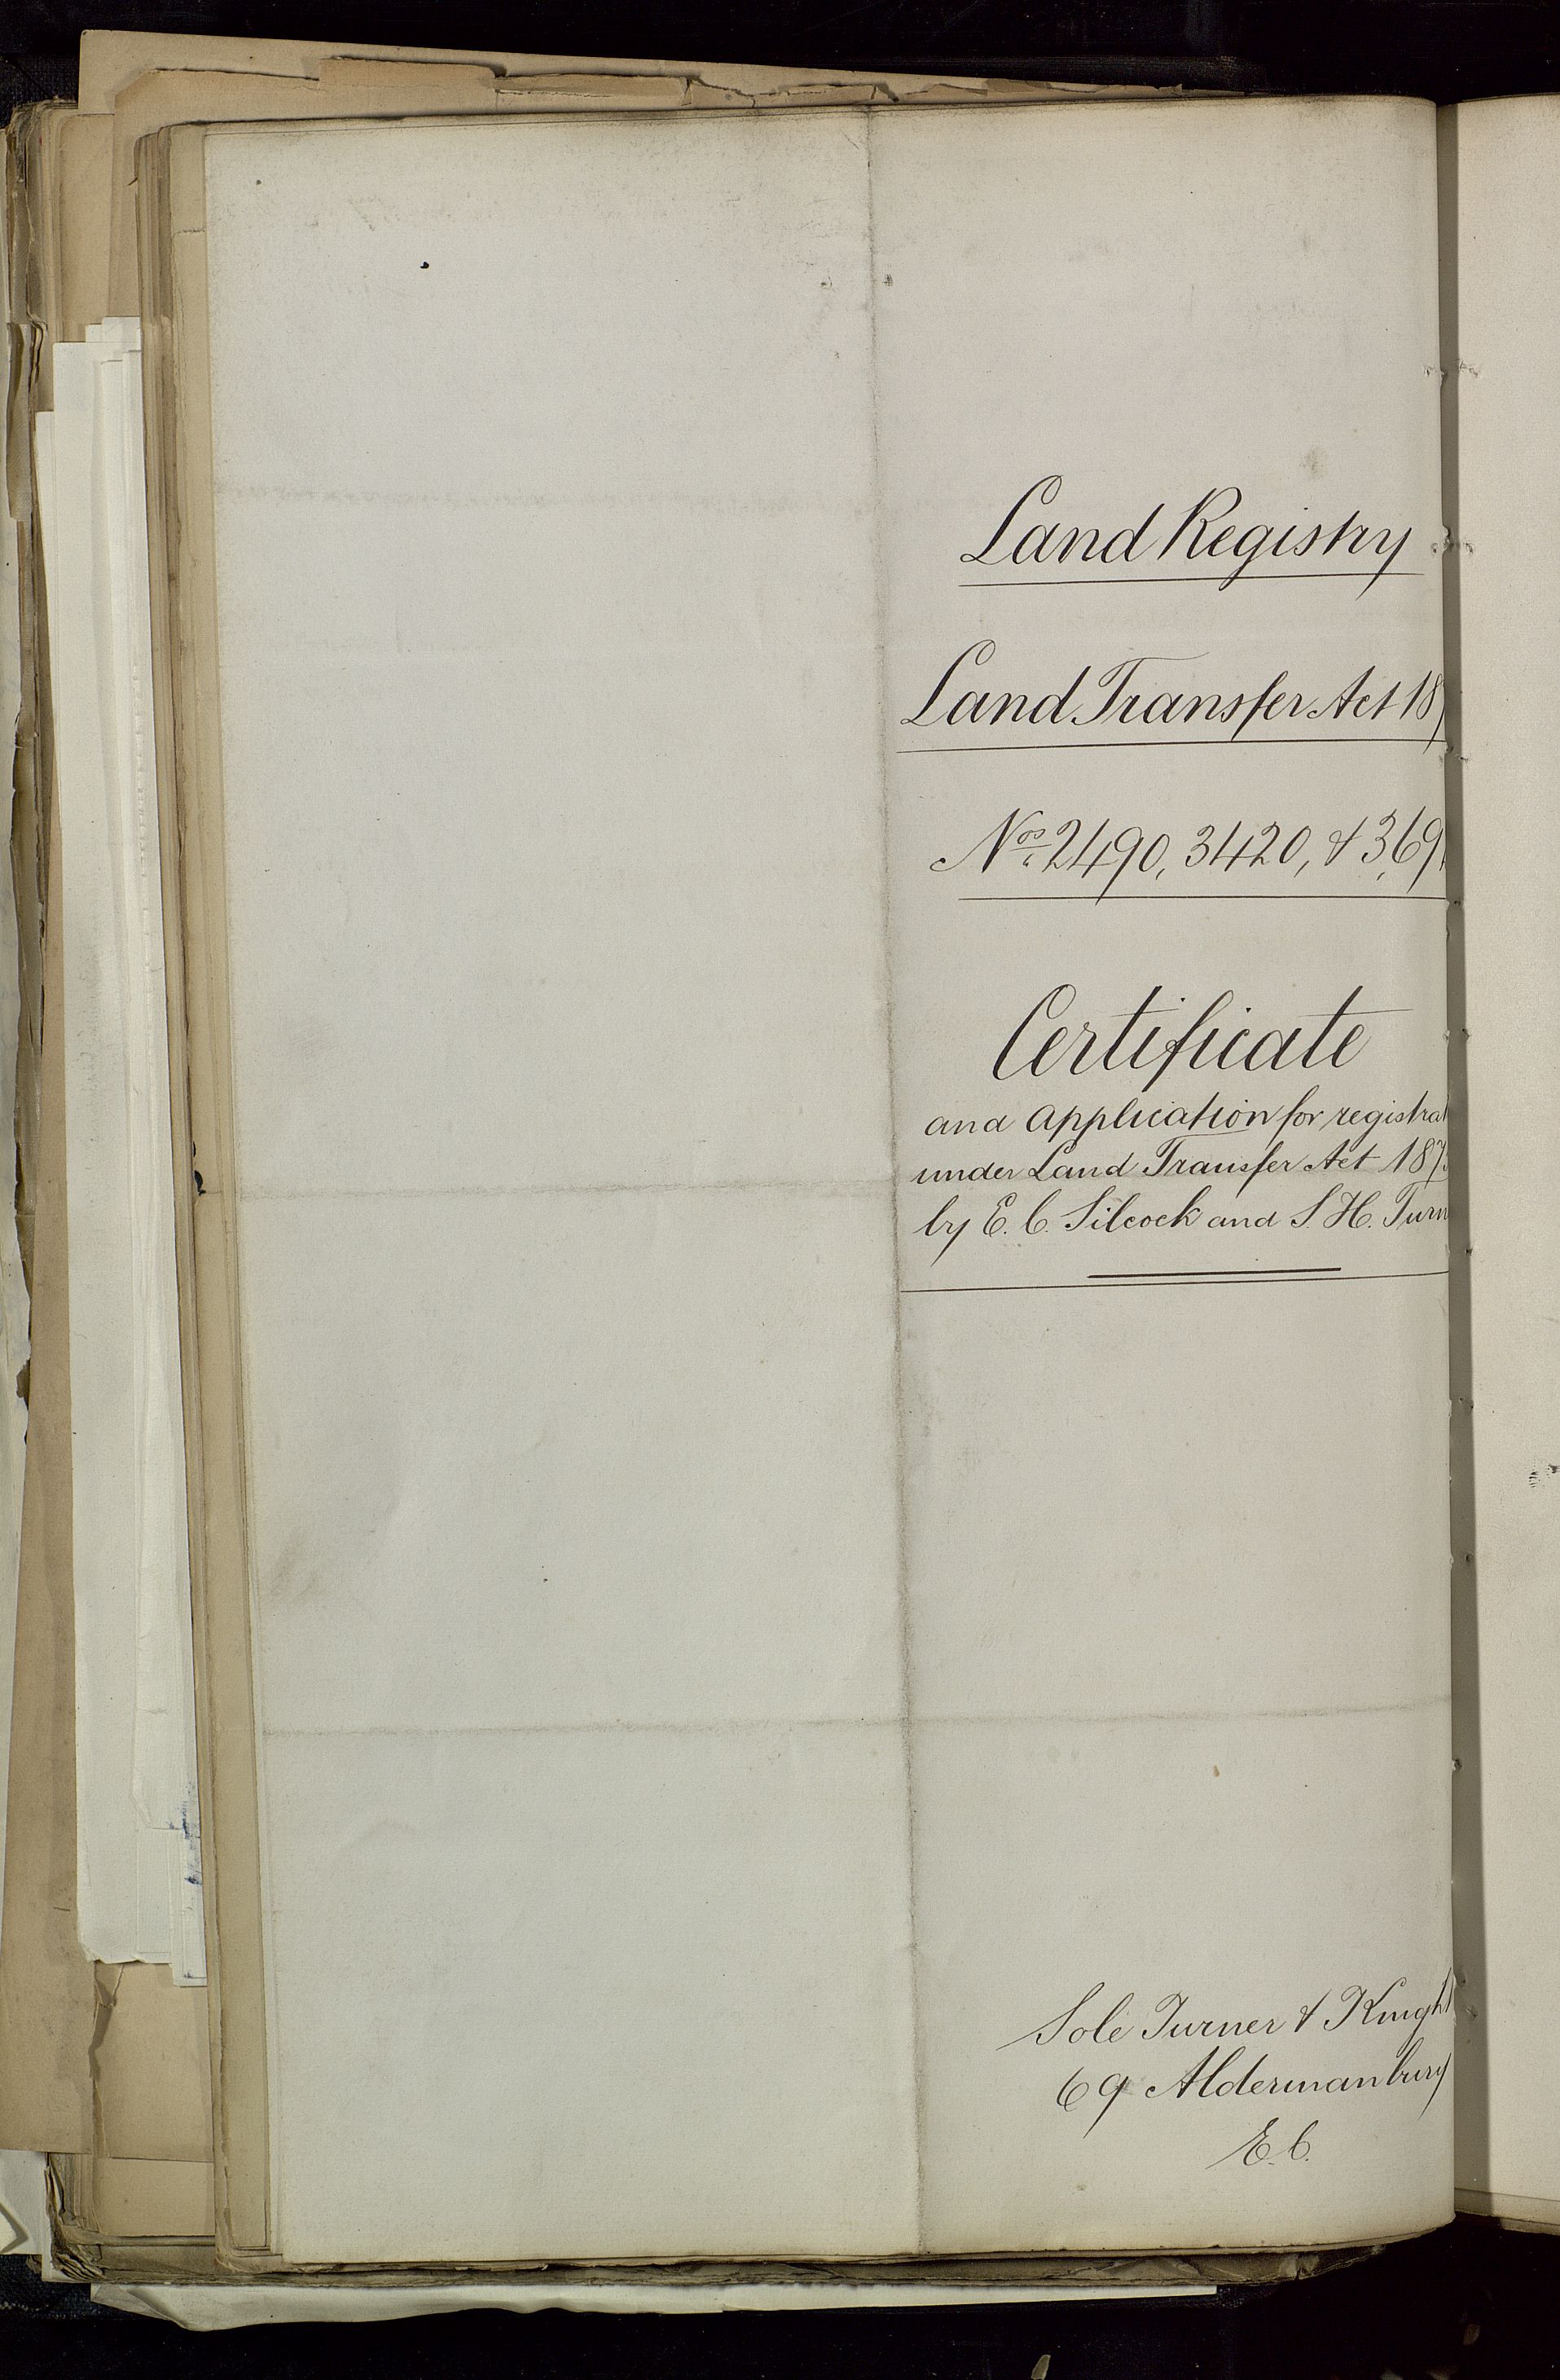 Land Registry
Land Transfer Act 187
Nos. 2490, 3420, & 369
Certificate
and application for registrat
under Land Transfer Act 187
by E. C. Silcock and S. H. Turn
Sole Turner & Knight
69 Aldermanbury
E.C.